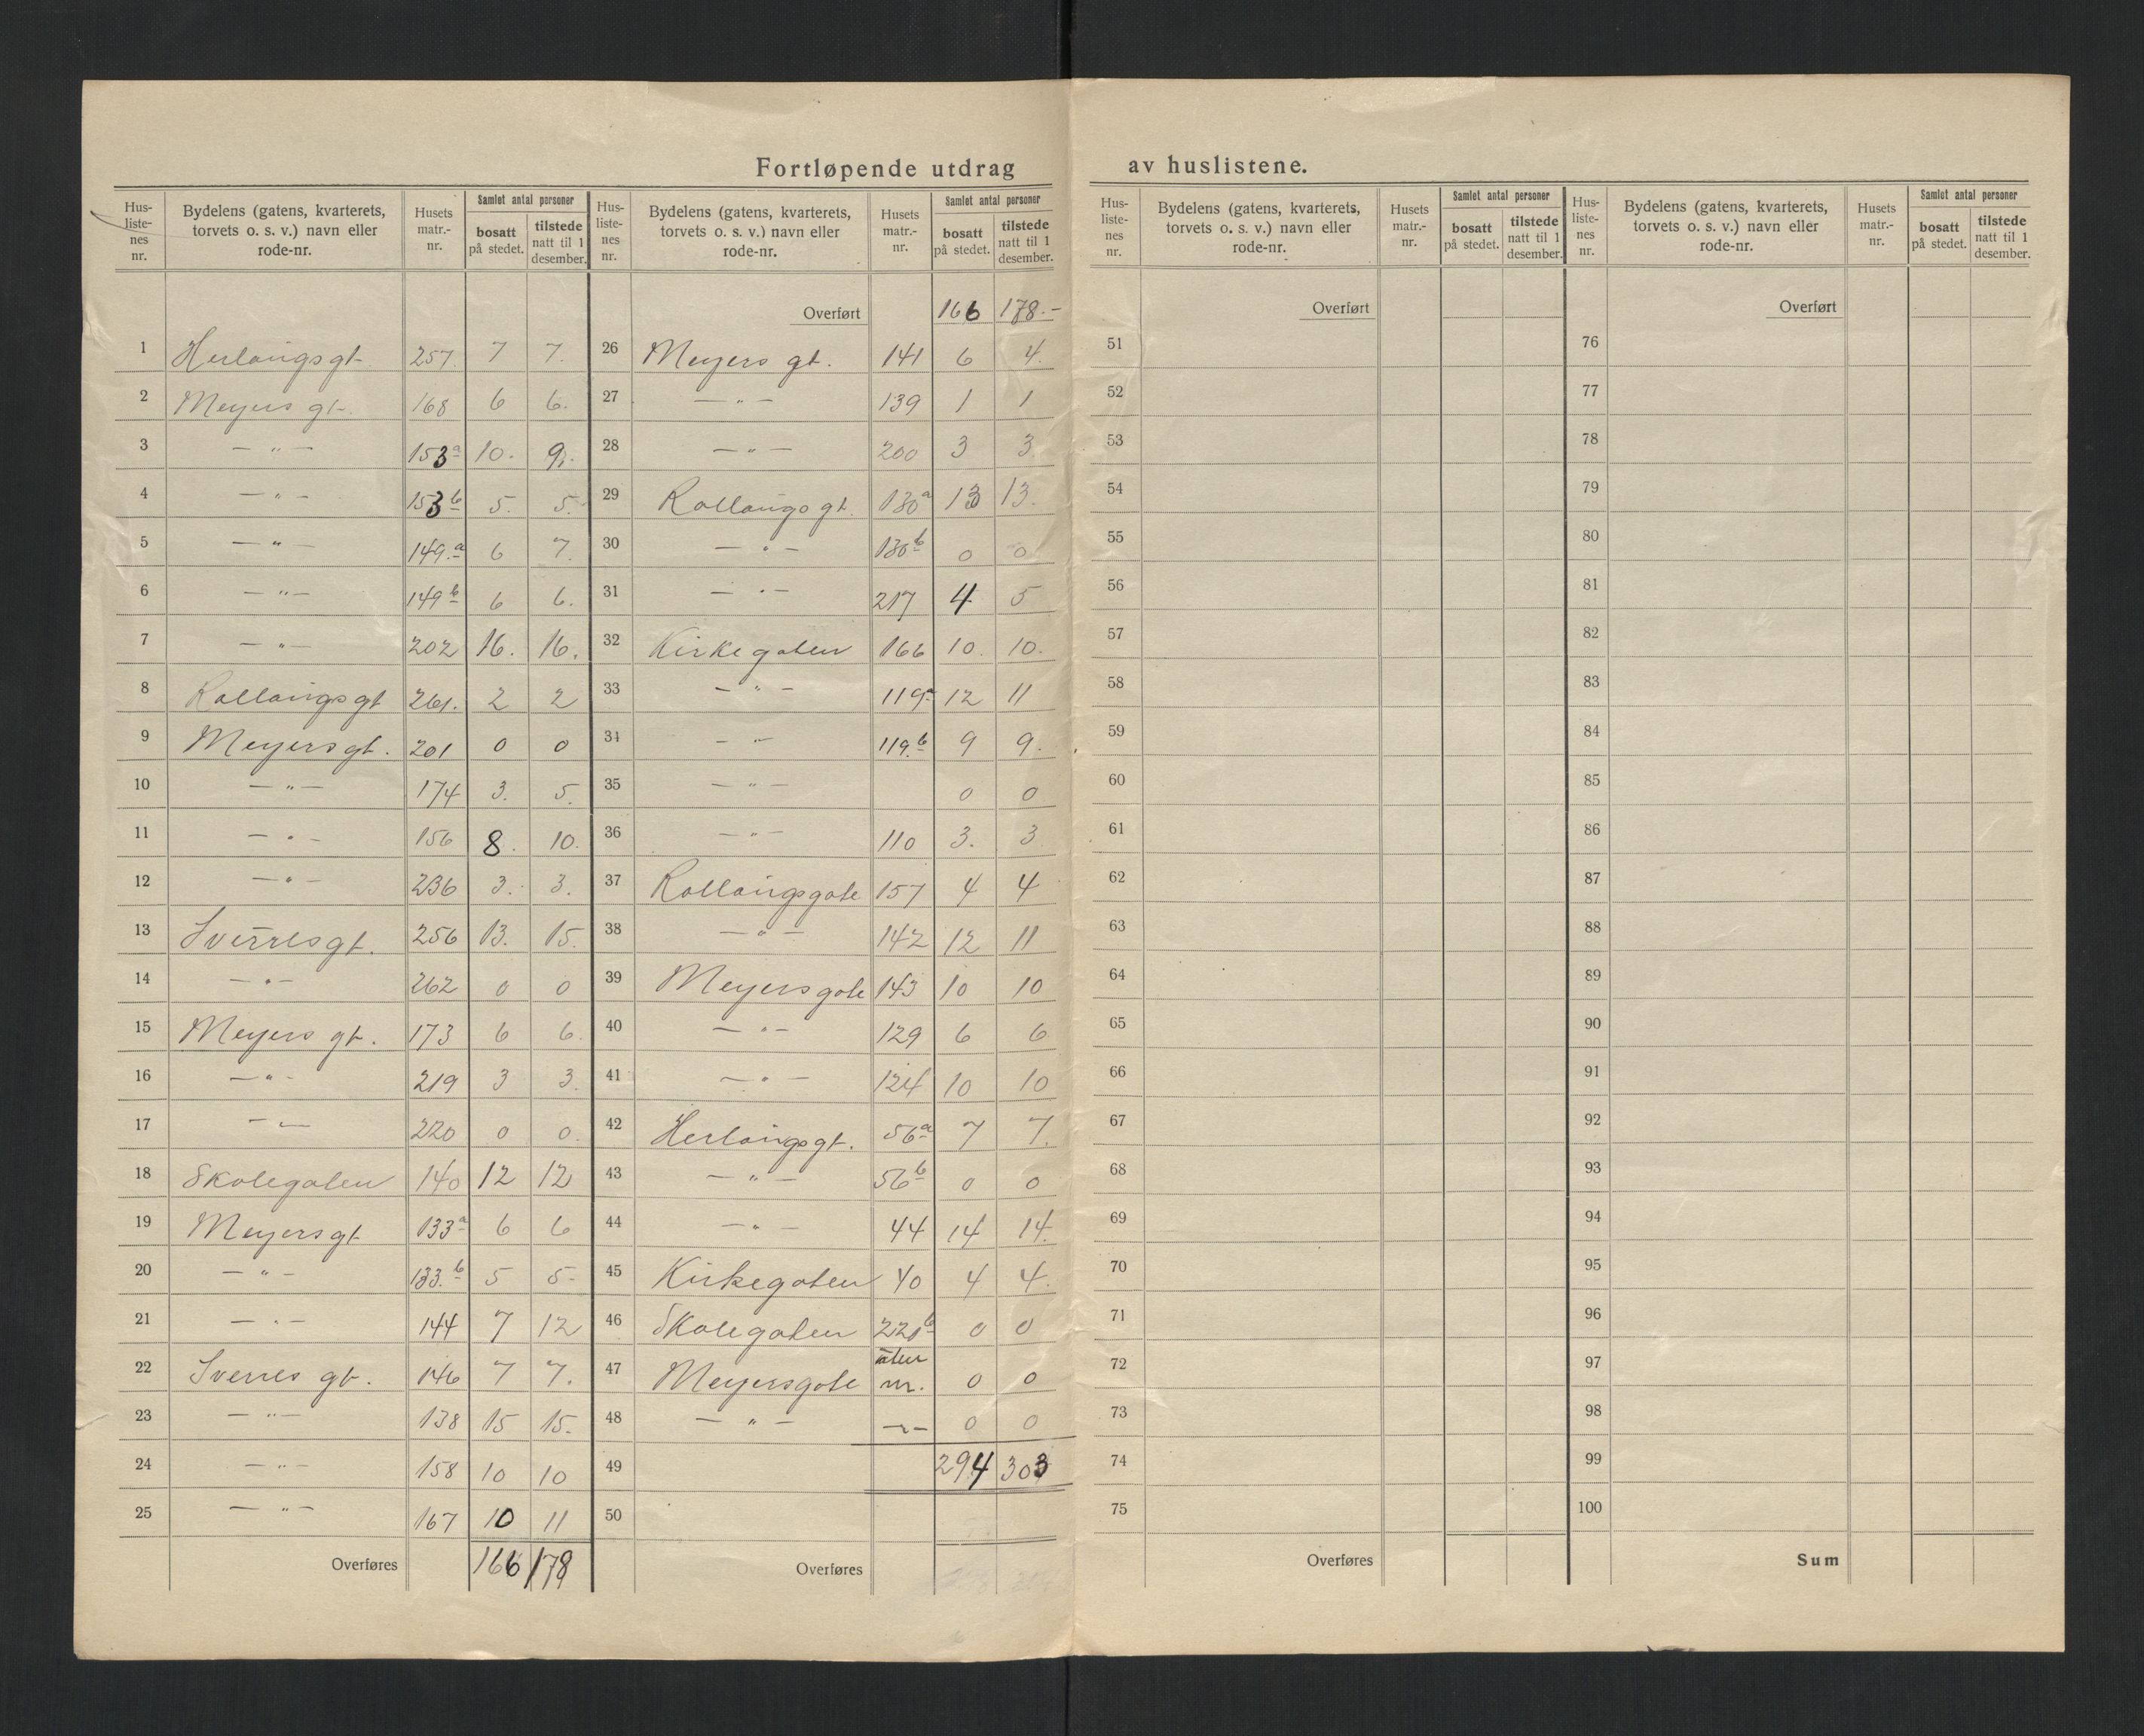 Fortløpende utdrag av huslistene.
Hus-listenes nr. | Bydelens (gatens, kvarterets, torvets o. s. v.) navn eller rode-nr. | Husets matr.-nr. | Samlet antal personer bosatt på stedet. | tilstede natt til 1 desember.
1 Herlaugsgt. 257. 7 7.
2 Meyers gt. 168 6 6.
3 — " — 153a 10. 9.
4 — " — 153b 5. 5.
5 — " — 149.a 6 7.
6 — " — 149b 6 6.
7 — " — 202 16. 16.
8 Rollaugsgt 261. 2 2
9 Meyersgt. 201 0 0
10 — " — 174 3. 5.
11 — " — 156 8. 10.
12 — " — 236 3. 3.
13 Sverresgt. 256 13. 15.
14 — " — 262 0 0
15 Meyers gt. 173 6 6.
16 — " — 219 3 3.
17 — " — 220 0 0
18 Skolegaten 140 12 12
19 Meyersgt 133a 6 6
20 — " — 133.b 5 5-
21 — " — 144 7 12
22 Sverres gt. 146 7 7.
23 — " — 138 15 15.
24 — " — 158 10 10
25 — " — 167 10 11
Overføres 166 178
Hus-listenes nr. | Bydelens (gatens, kvarterets, torvets o. s. v.) navn eller rode-nr. | Husets matr.-nr. | Samlet antal personer bosatt på stedet. | tilstede natt til 1 desember.
Overført 166 178.-
26 Meyers gt. 141 6 4.
27 — " — 139 1 1
28 — " — 200 3 3.
29 Rollaugsgt. 130a 13 13.
30 — " — 130b 0 0
31 — " — 217 4 5
32 Kirkegaten 166 10. 10.
33 — " — 119a 12 11
34 — " — 119.b 9 9.
35 — " — 0 0
36 — " — 110 3. 3
37 Rollaugsgate 157 4 4
38 — " — 142 12 11
39 Meyersgate 143 10 10
40 — " — 129 6 6
41 — " — 124 10 10
42 Herlaugsgt. 56a 7 7.
43 — " — 56b 0 0
44 — " — 44 14 14.
45 Kirkegaten 40 4 4.
46 Skolegaten 220b 0 0
47 Meyersgate uten nr. 0 0
48 — " — — " — 0 0
49 294 303
50
Overføres
Hus-listenes nr. | Bydelens (gatens, kvarterets, torvets o. s. v.) navn eller rode-nr. | Husets matr.-nr. | Samlet antal personer bosatt på stedet. | tilstede natt til 1 desember.
Overført
51
52
53
54
55
56
57
58
59
60
61
62
63
64
65
66
67
68
69
70
71
72
73
74
75
Overføres
Hus-listenes nr. | Bydelens (gatens, kvarterets, torvets o. s. v.) navn eller rode-nr. | Husets matr.-nr. | Samlet antal personer bosatt på stedet. | tilstede natt til 1 desember.
Overført
76
77
78
79
80
81
82
83
84
85
86
87
88
89
90
91
92
93
94
95
96
97
98
99
100
Sum